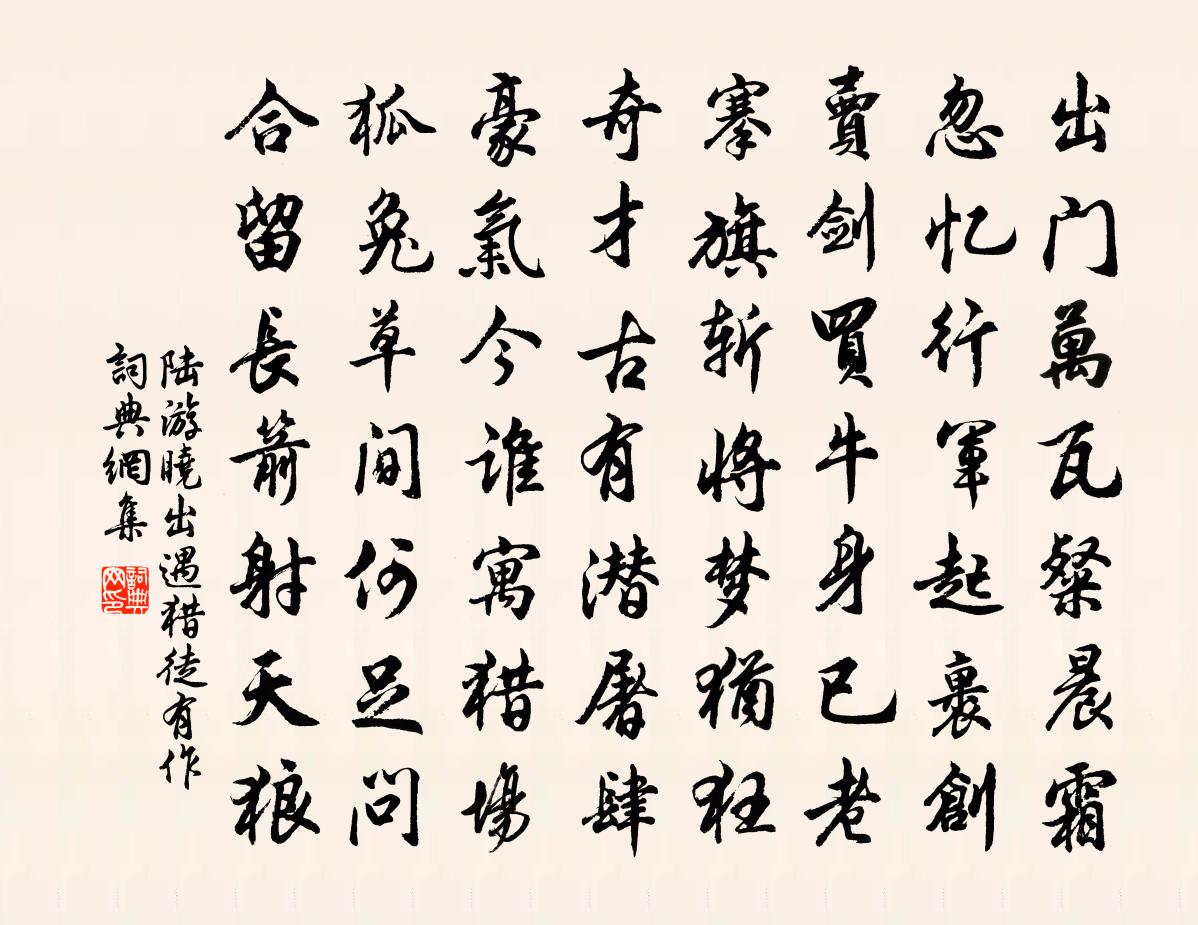 出门萬瓦粲晨霜
忽忆行军起裹創
賣剑買牛身已老
搴旗斩將梦猶狂
奇才古有潜屠肆
豪氣今谁寓猎場
狐兔草间何足问
合留長箭射天狼
陆游曉出遇猎徒有作
詞典網集
詞典网印